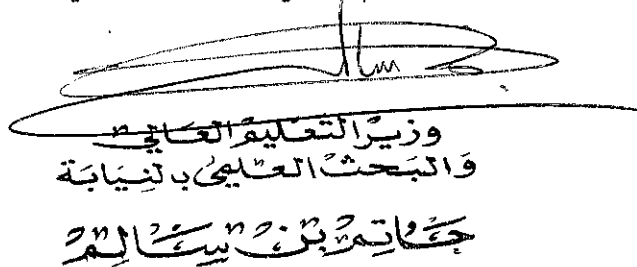 وزير التعليم العالي
والبحث العلمي بالنيابة
حاتم بن سالم